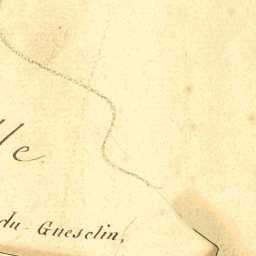 lle
du-Guesclin,